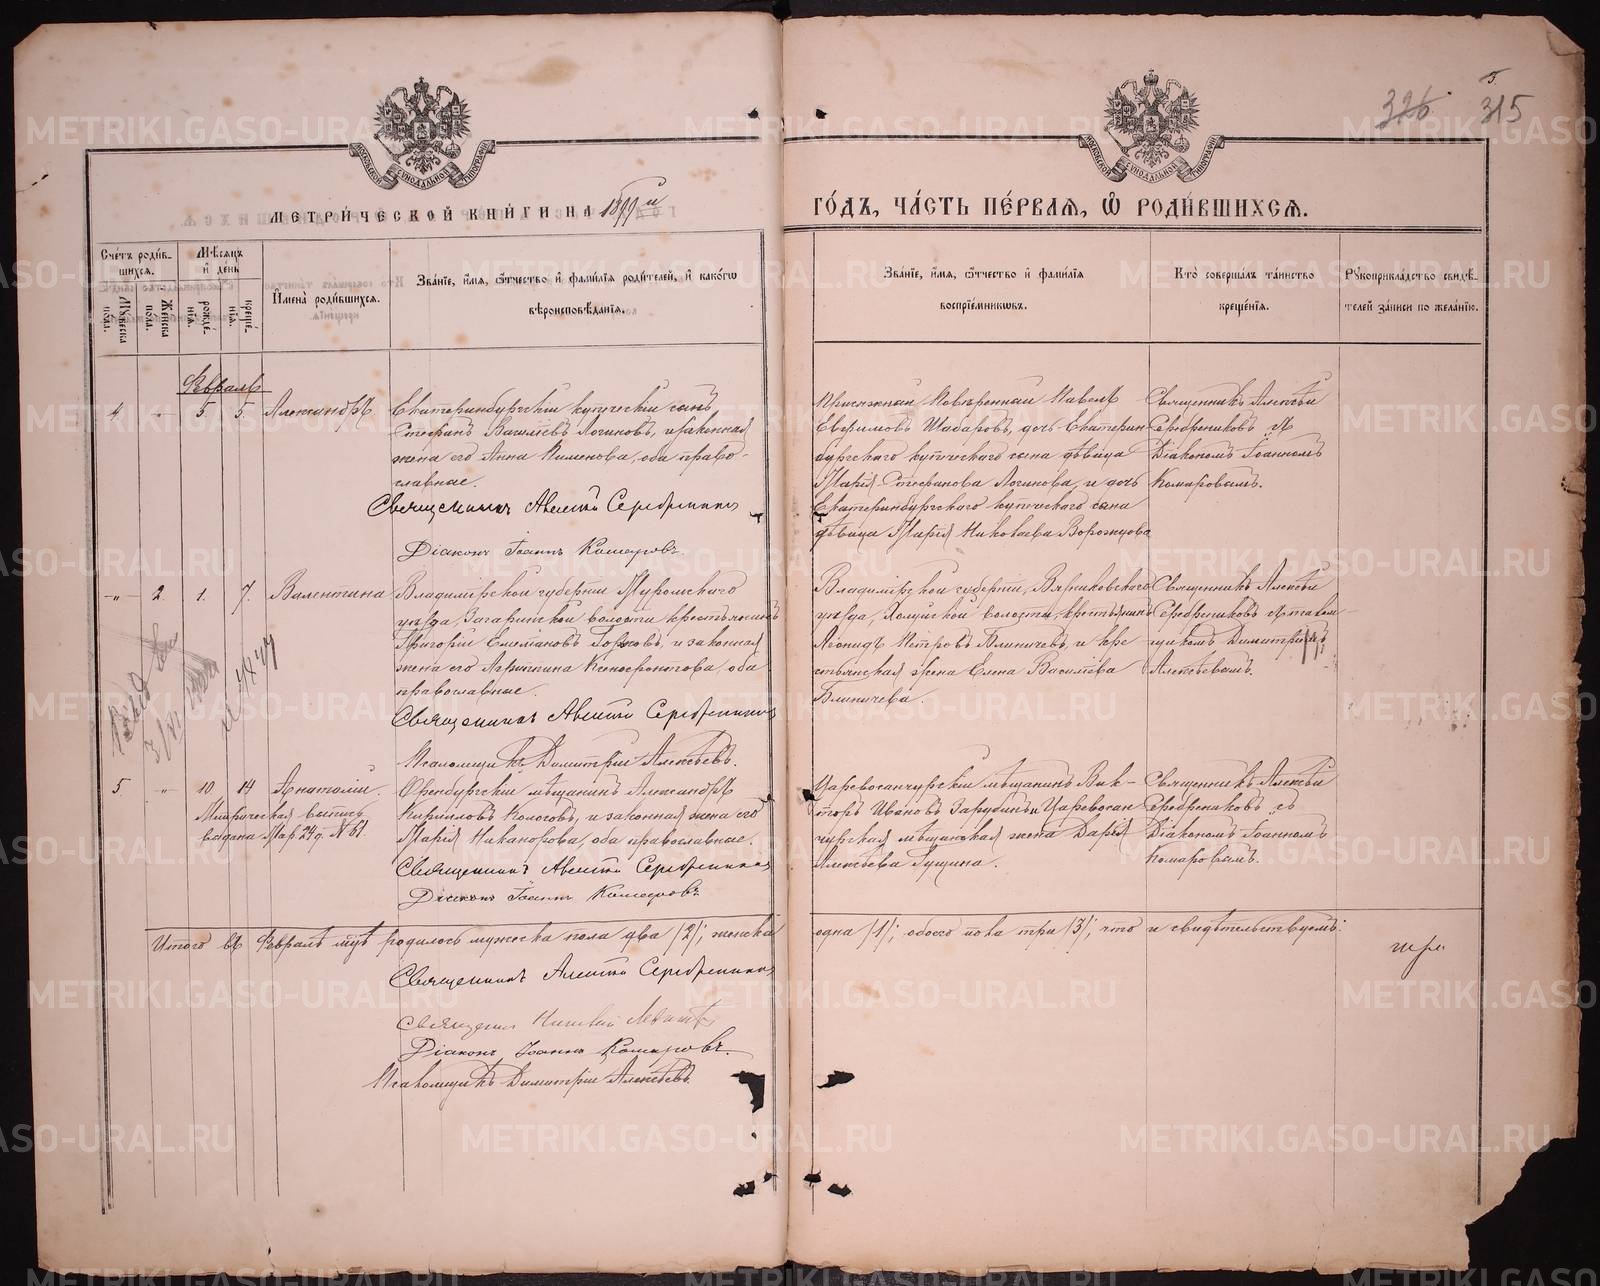 326
315
МЕТРИ́ЧЕСКОЙ КНИ́ГИ НА 1899 й
ГО́ДЪ, ЧА́СТЬ ПЕ́РВАѦ, Ѡ РОДИ́ВШИХСѦ.
Сче́тъ роди́в-
шихсѧ.
Мꙋ́жеска пола.
Же́нска пола.
Мѣ́сѧцъ и҆ де́нь
рожде́-
нїѧ.
креще́-
нїѧ.
И҆мена̀ роди́вшихсѧ.
Зва́нїе, и҆́мѧ, ѻ҆́тчество и҆ фами́лїѧ роди́телей, и҆ како́гѡ
вѣроисповѣ́данїѧ.
Зва́нїе, и҆́мѧ, ѻ҆́тчество и҆ фами́лїѧ
воспрїе́мникѡвъ.
Кто̀ соверша́лъ та́инство
креще́нїѧ.
Рꙋкоприкла́дство свидѣ́-
телей за́писи по жела́нїю.
Февраль
4 " 5. 5. Александръ
Екатеринбургскій купческій сынъ
Стефанъ Василіевъ Логиновъ, и законная
жена его Анна Пименова, оба право-
славные.
Священникъ Алексій Серебренниковъ
Діаконъ Іоаннъ Комаровъ.
Присяжный Повѣренный Павелъ
Евфимовъ Шабаровъ, дочь Екатерин-
бургскаго купческаго сына дѣвица
Марія Стефанова Логинова, и дочь
Екатеринбургскаго купческаго сына
дѣвица Марія Николаева Ворожцова
Священникъ Алексѣй
Серебренниковъ съ
Діакономъ Іоанномъ
Комаровымъ.
" 2. 1. 7. Валентина
Владимірской губерніи Муромскаго
уѣзда, Загаринской волости крестьянинъ
Григорій Емельяновъ и законная
жена его Агриппина Ксенофонтова, оба
православные.
Священникъ Алексій Серебренниковъ
Псаломщикъ Димитрій Алексѣевъ.
Владимірской губерніи, Вязниковскаго
уѣзда, Холуйской волости, крестьянинъ
Леонидъ Петровъ Блиничевъ, и кре-
стьянская жена Елена Василіева
Блиничева.
Священникъ Алексѣй
Серебренниковъ съ псалом-
щикомъ Димитріемъ
Алексѣевымъ.
5 " 10. 14 Анатолій.
Метрическая выпись
выдана Мар. 24 д. № 61.
Оренбургскій мѣщанинъ Александръ
Кирилловъ Кологовъ, и законная жена его
Марія Никанорова, оба православные.
Священникъ Алексій Серебренниковъ
Діаконъ Іоаннъ Комаровъ
Царевосанчурскій мѣщанинъ Вик-
торъ Ивановъ Зарубинъ и Царевосан-
чурская мѣщанская жена Дарія
Алексѣева Гущина.
Священникъ Алексѣй
Серебренниковъ съ
Діакономъ Іоанномъ
Комаровымъ.
Итого въ Февралѣ м-цѣ родилось мужеска пола два /2/, женска одна /1/, обоего пола три /3/, что и свидѣтельствуемъ:
Священникъ Алексій Серебренниковъ
Священник
Діаконъ Іоаннъ Комаровъ.
Псаломщикъ Димитрій Алексѣевъ.
METRIKI.GASO-URAL.RU